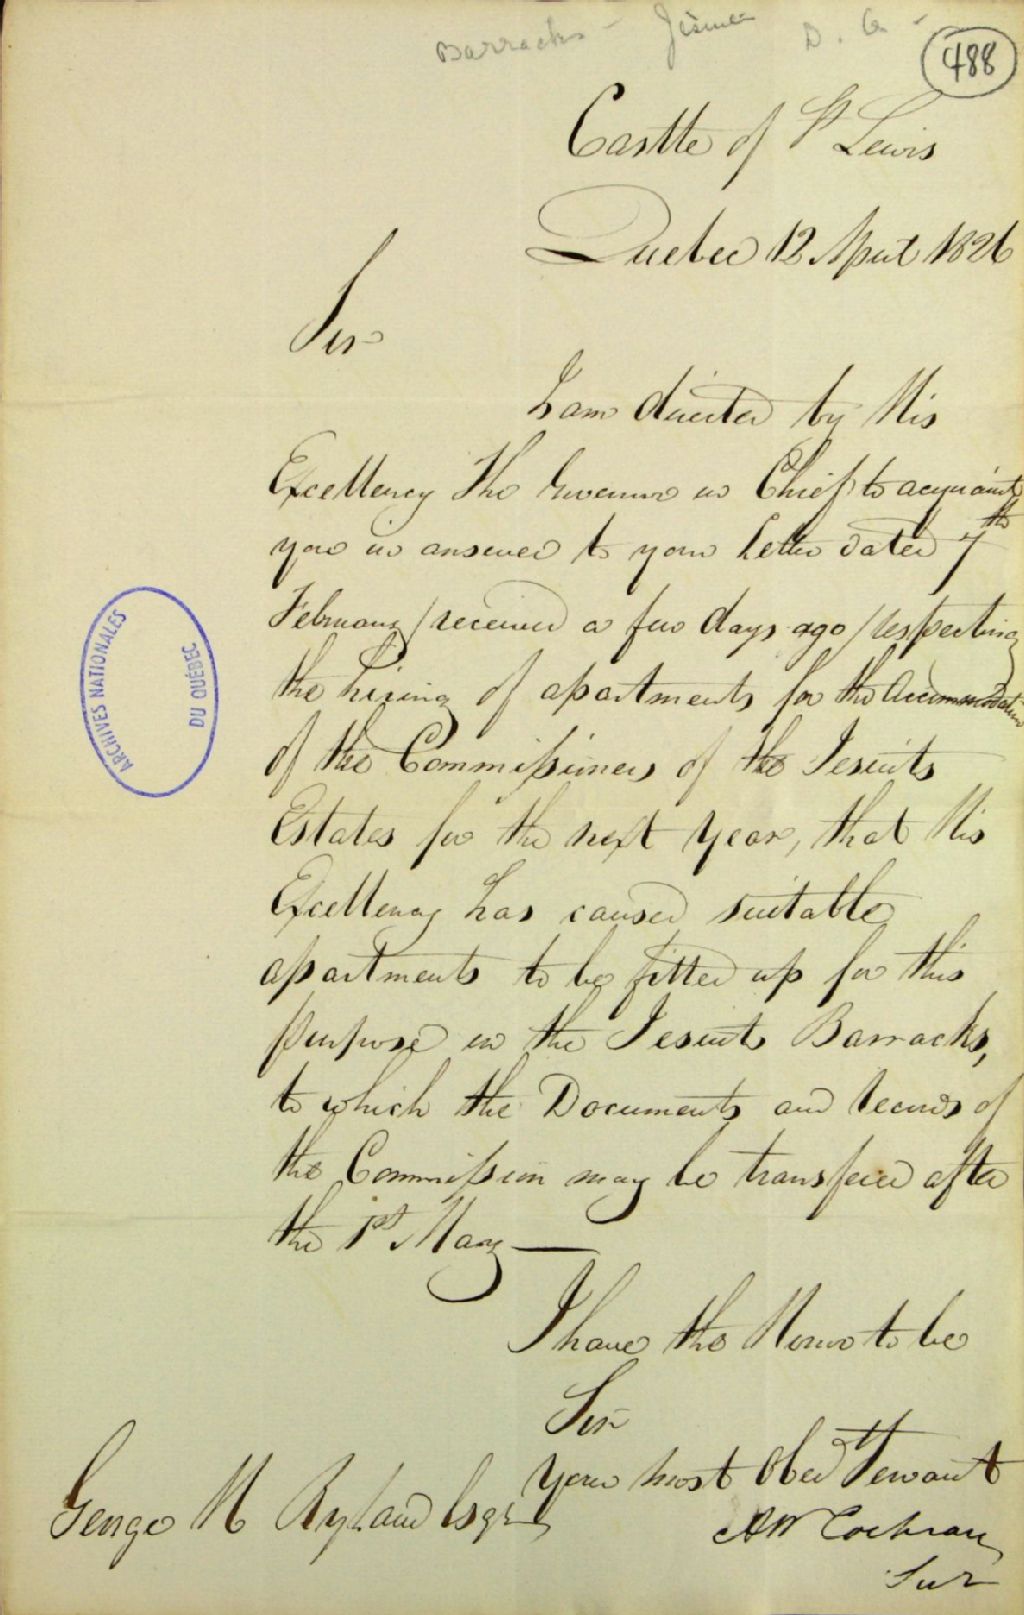 Barracks – Jesuit D. G –
488
Castle of St Lewis
Quebec 12 April 1826
Sir
I am directed by His
Excellency The Governor in Chief to acquaint
you in answer to your Letter dated 7th
February / received a few days ago / respecting
the hiring of apartments for the Accommodation
of the Commissioners of the Jesuits
Estates for the next Year, that His
Excellency has caused suitable
apartments to be fitted up for this
purpose in the Jesuits Barracks,
to which the Documents and Records of
the Commission may be transfered after
the 1st May —
I have the Honor to be
Sir
Your most Obed Servant
George H Ryland Esqre
AW Cochran
Secr
ARCHIVES NATIONALES
DU QUÉBEC